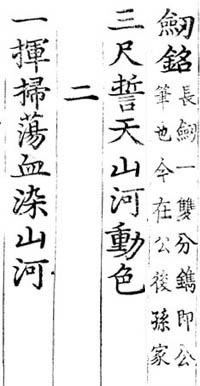 劒銘長劒一雙分鐫即公
筆也今在公後孫家
三尺誓天山河動色
二
一揮掃蕩血染山河